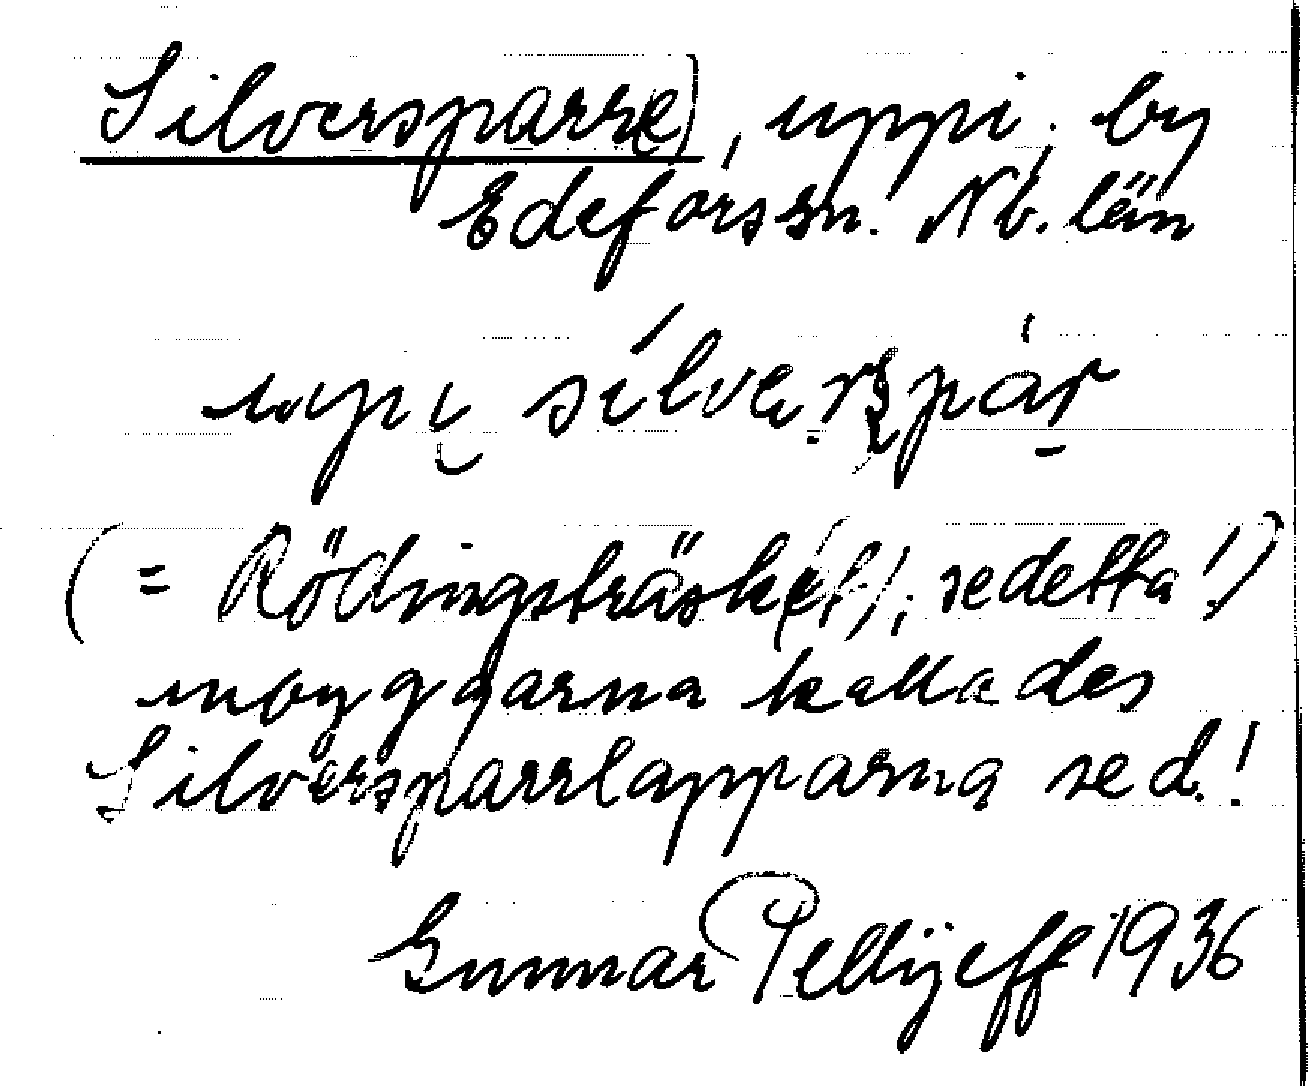 Silversparr(e), uppi, by
Edefors sn. Nb. län
upi sílverspár
(= Rödingsträsk(et), se detta!)
nybyggarna kallades
Silversparrlapparna se d.!
Gunnar Pellijeff 1936